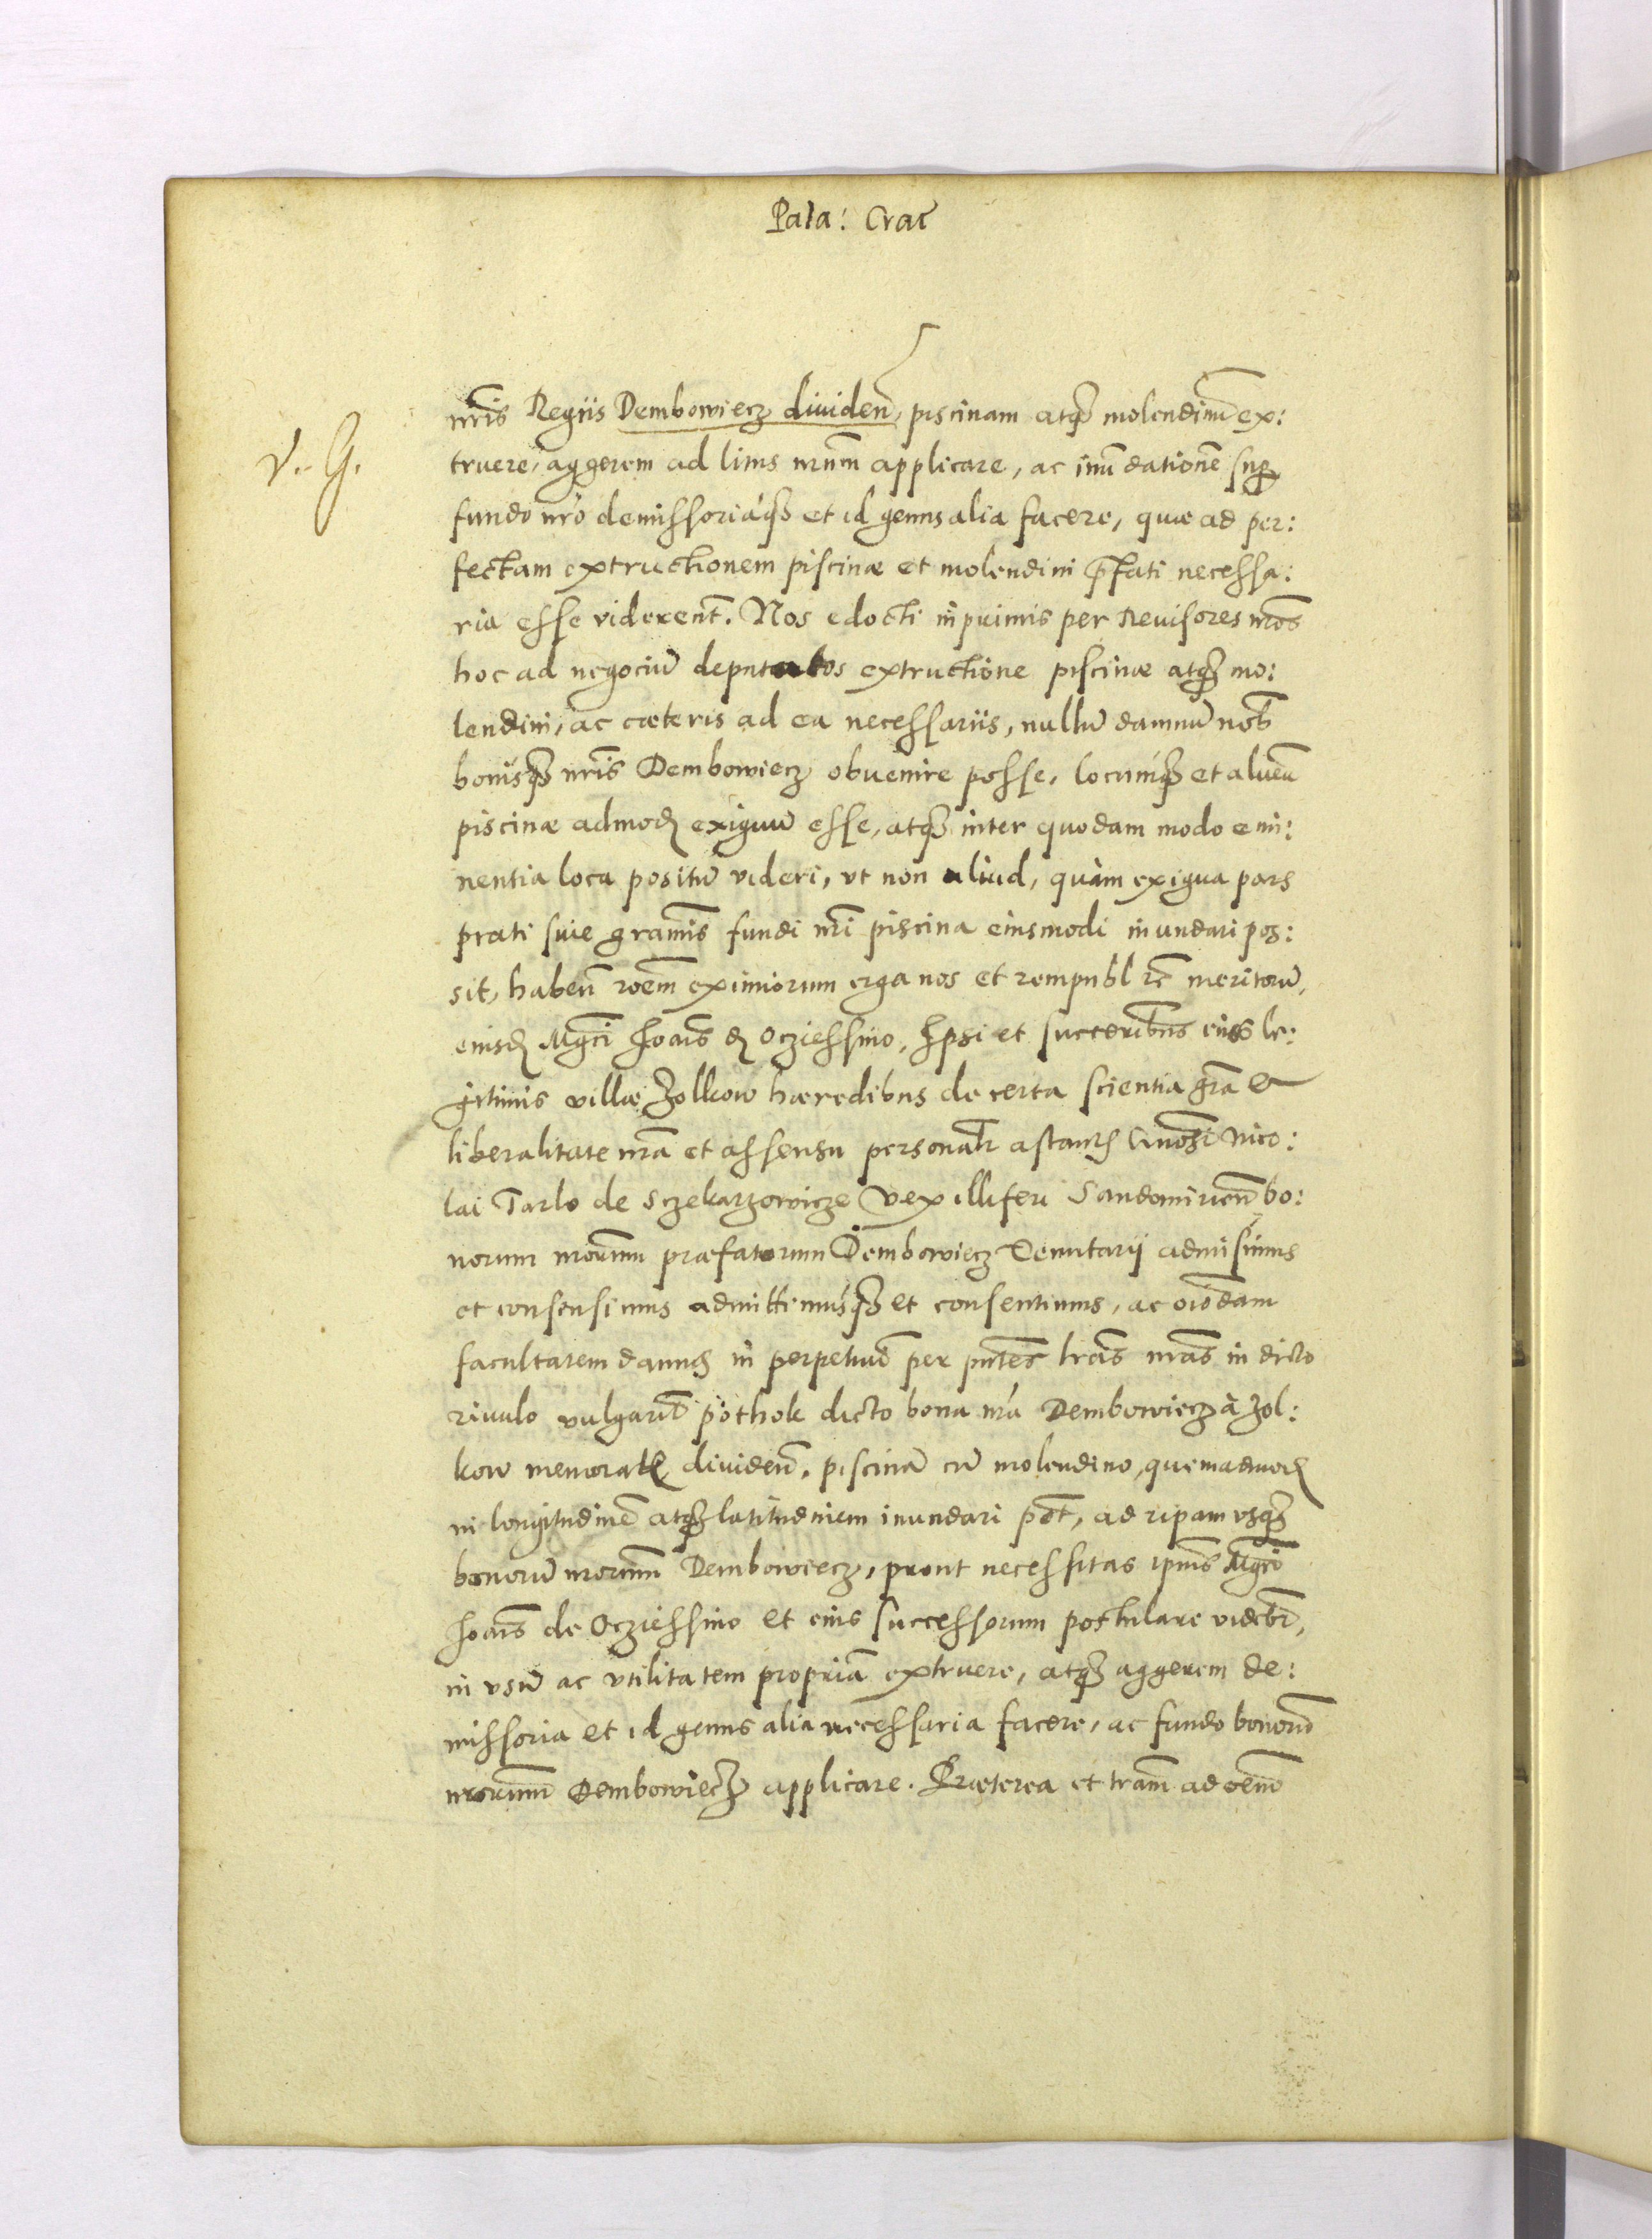 Pala: Crac̄
nr̄is Regiis Dembowiecz diuiden̄, piscinam atqȝ molendinū ex:
V. G.
truere, aggerem ad litus nrūm applicare, ac inūdationē sup
fundo nr̄o demissoriaqȝ et id genus alia facere, quæ ad per:
fectam extructionem piscinæ et molendini p̄fati necessa:
ria esse viderent̄. Nos edocti inprimis per Reuisores nr̄os
hoc ad negociū deputatos extructione piscinæ atqȝ mo:
lendini, ac cæteris ad ea necessariis, nullū damnū nob̄
bonisqȝ nr̄is Dembowiecz obuenire posse, locumqȝ et alueū
piscinæ admod exiguū esse, atqȝ inter quodam modo emi:
nentia loca positū videri, vt non aliud, quàm exigua pars
prati siue gramīs fundi nr̄i piscina eiusmodi inundari pos:
sit, haben̄ rōem eximiorum erga nos et rempubl rc̄ meritorū,
eiusd Mgc̄i Joāis d Ocziessino, Ipsi et succeribus eius le:
gitimis villæ Zolkow hæredibus de certa scientia gr̄a et
liberalitate nr̄a et assensu personalr̄ astantis Gn̄osi Nico:
lai Tarlo de Sczekarzowicze Vexilliferi Sandomirien̄ bo:
norum nrōrum præfatorum Dembowiecz Tenutarij admisimus
et consensimus admittimusqȝ et consentimus, ac oīodam
facultatem damus in perpetuū per pn̄tes lr̄as nr̄as in dicto
riuulo vulgarit̄ pothok dicto bona nr̄a Dembowiecz à Zol:
kow memoratis diuiden̄, piscinā cū molendino, quemadmod
in longitudinē atqȝ latitudinem inundari pōt, ad ripam vsqȝ
bonorū nrōrum Dembowiecz, prout necessitas ipīus Mgc̄i
Joāis de Ocziessino et eius successorum postulare videbr̄,
in vsū ac vtilitatem propriā extruere, atqȝ aggerem de:
missoria et id genus alia necessaria facere, ac fundo bonorū
nrōrum Dembowiecz applicare. Præterea et trām ad oēm